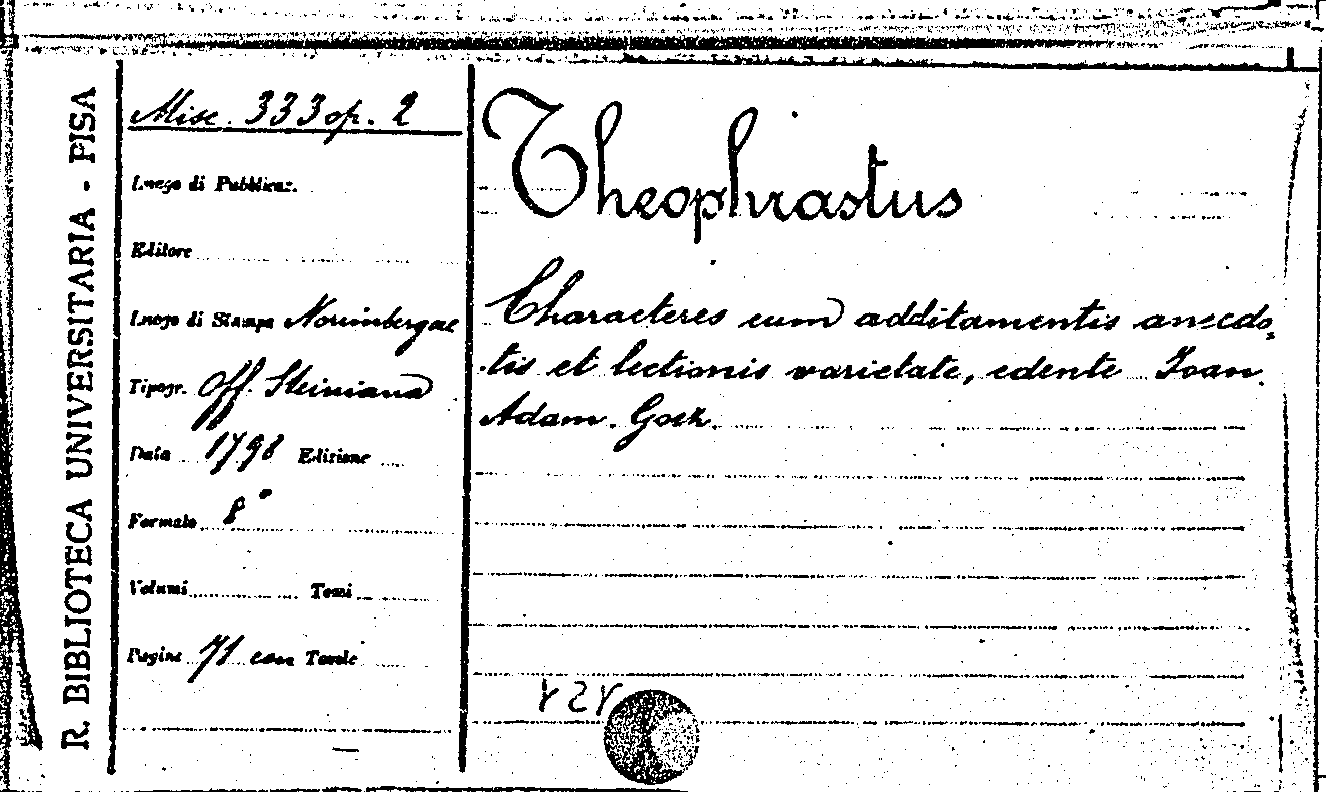 R. BIBLIOTECA UNIVERSITARIA - PISA
Misc. 333 op. 2
Luogo di Pubblicaz.
Editore
Luogo di Stampa Norimbergae
Tipogr. Off. Steiniana
Data 1798 Edizione
Formato 8°
Volumi Tomi
Pagine 71 con Tavole
Theophrastus
Characteres cum additamentis anecdo-
tis et lectionis varietate, edente Ioan.
Adam. Goez.